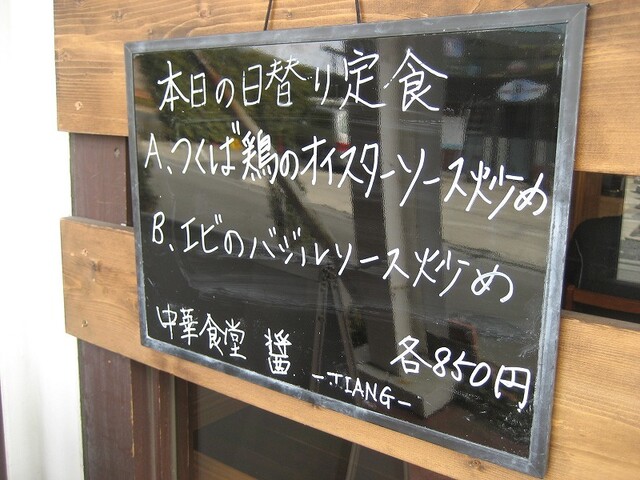 本日の日替り定食
A、つくば鶏のオイスターソース炒め
B、エビのバジルソース炒め
各850円
中華食堂 醤 -JIANG-